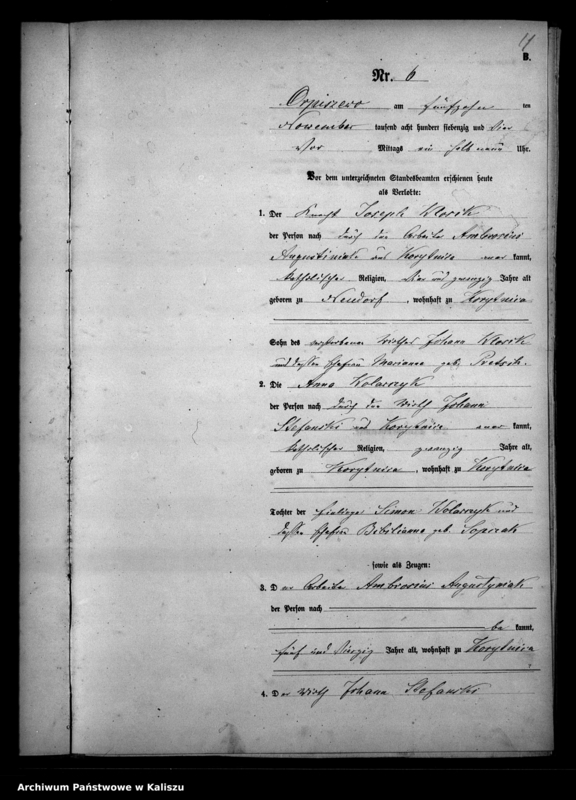 17
B.
Nr. 6
Orpiszewo am fünfzehn ten
November tausend acht hundert siebenzig und vier
Vor Mittags um halb neun Uhr.
Vor dem unterzeichneten Standesbeamten erschienen heute
als Verlobte:
1. Der Knecht Joseph Klosik
der Person nach durch den Arbeiter Ambrosius
Augustiniak aus Korytnica aner kannt,
katholischer Religion, vier und zwanzig Jahre alt
geboren zu Neudorf, wohnhaft zu Korytnica
Sohn des verstorbenen Wirthes Johann Klosik
und dessen Ehefrau Marianna geb.
2. Die Anna Kolarczyk
der Person nach durch den Wirth Johann
Stefanski aus Korytnica aner kannt,
katholischer Religion, zwanzig Jahre alt,
geboren zu Korytnica, wohnhaft zu Korytnica
Tochter der Simon Kolarczyk und
dessen Ehefrau Bibilianna geb.
sowie als Zeugen:
3. Der Arbeiter Ambrosius Augustyniak
der Person nach
be kannt,
fünf und vierzig Jahre alt, wohnhaft zu Korytnica
4. Der Wirth Johann Stefanski
Archiwum Państwowe w Kaliszu